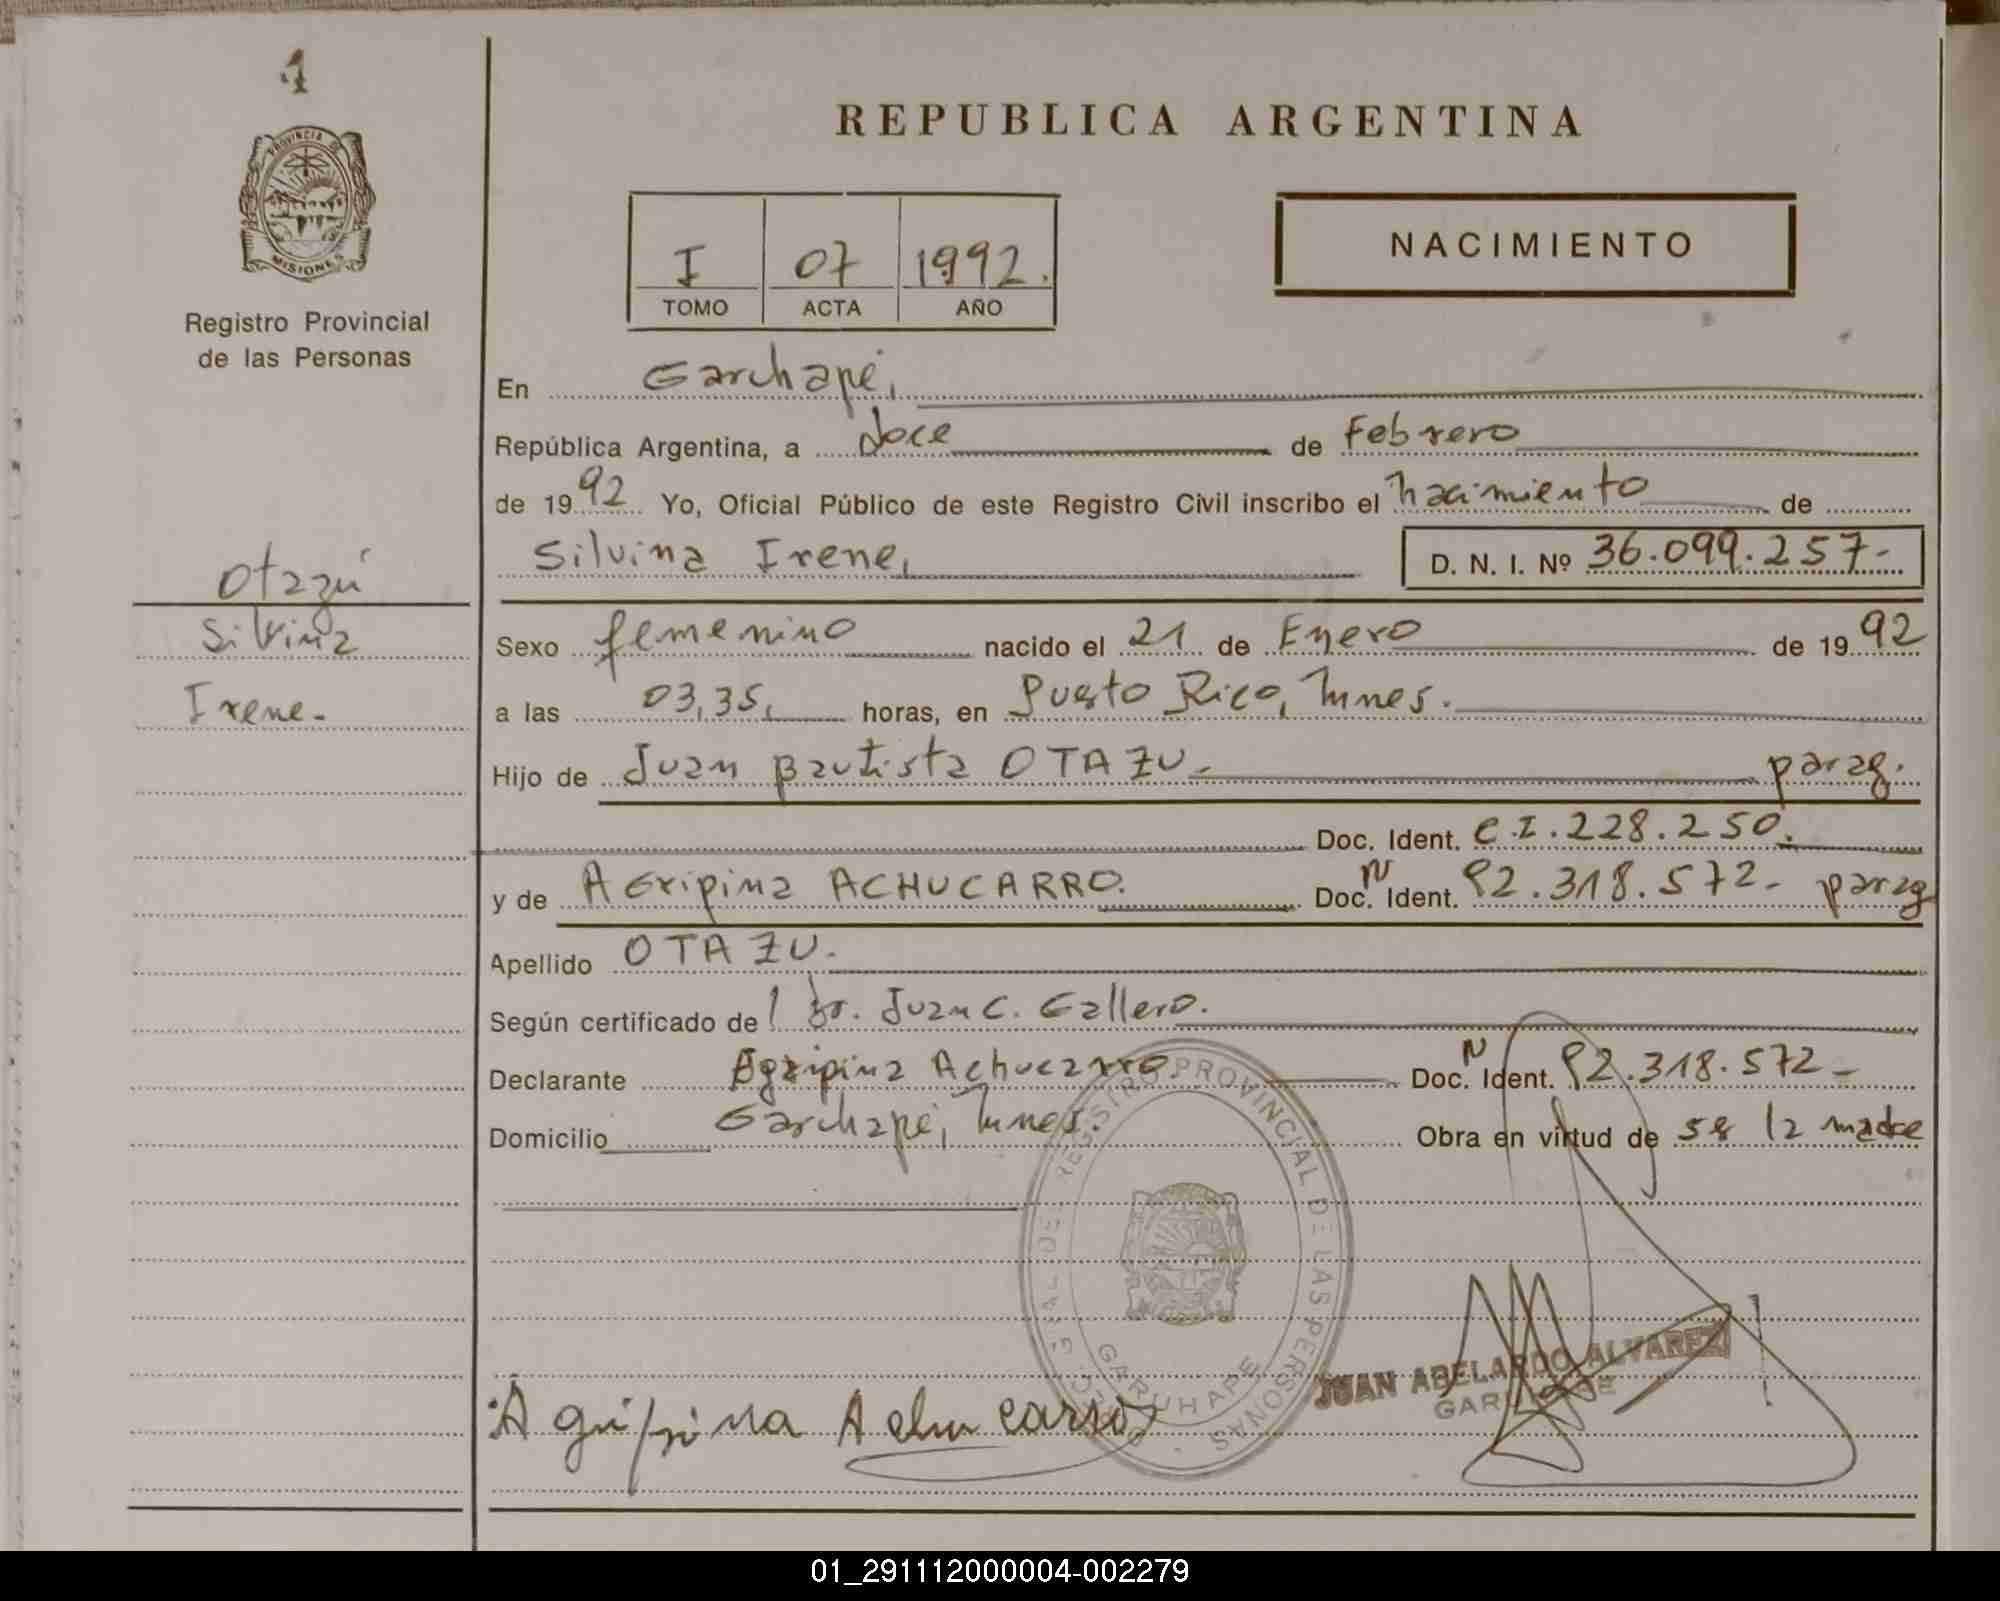 1
PROVINCIA DE
MISIONES
Registro Provincial
de las Personas
Otazú
Silvina
Irene-
REPUBLICA ARGENTINA
I 07 1992.
TOMO ACTA AÑO
NACIMIENTO
En Garuhapé,
República Argentina, a doce de Febrero
de 1992 Yo, Oficial Público de este Registro Civil inscribo el nacimiento de
Silvina Irene, D. N. I. Nº 36.099.257-
Sexo femenino nacido el 21 de Enero de 1992
a las 03,35, horas, en Puerto Rico, Mnes.
Hijo de Juan Bautista OTAZU- parag.
Doc. Ident. C.I. 228.250.
y de AGripina ACHUCARRO. Doc. N Ident. 92.318.572- parag
Apellido OTAZU.
Según certificado de l Dr. Juan C. Gallero.
Declarante Agripina Achucarro Doc. N Ident. 92.318.572-
Domicilio Garuhapé, Mnes. Obra en virtud de ser la madre
REGISTRO PROVINCIAL DE LAS PERSONAS
GARUHAPE
JUAN ABELARDO ALVAREZ
Agripina Achucarro
01_291112000004-002279